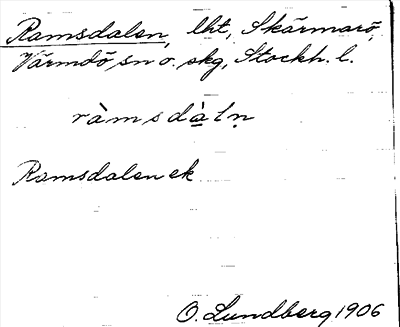 Ramsdalen, lht, Skärmarö,
Värmdö sn o. skg, Stockh. l.
ràmsdàlṇ
Ramsdalen ek
O. Lundberg 1906